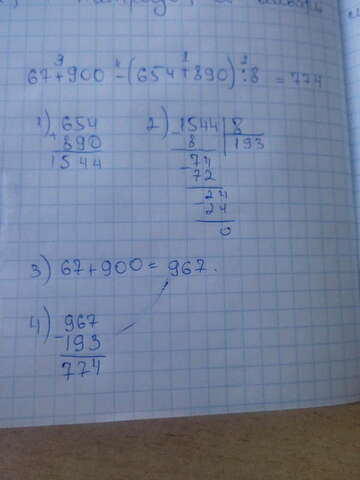 3 4 1 2
67+900-(654+890):8=774
1) 654
+890
1544
2) 1544 | 8
8 | 193
-74
72
-24
24
0
3) 67+900=967.
4) -967
193
774